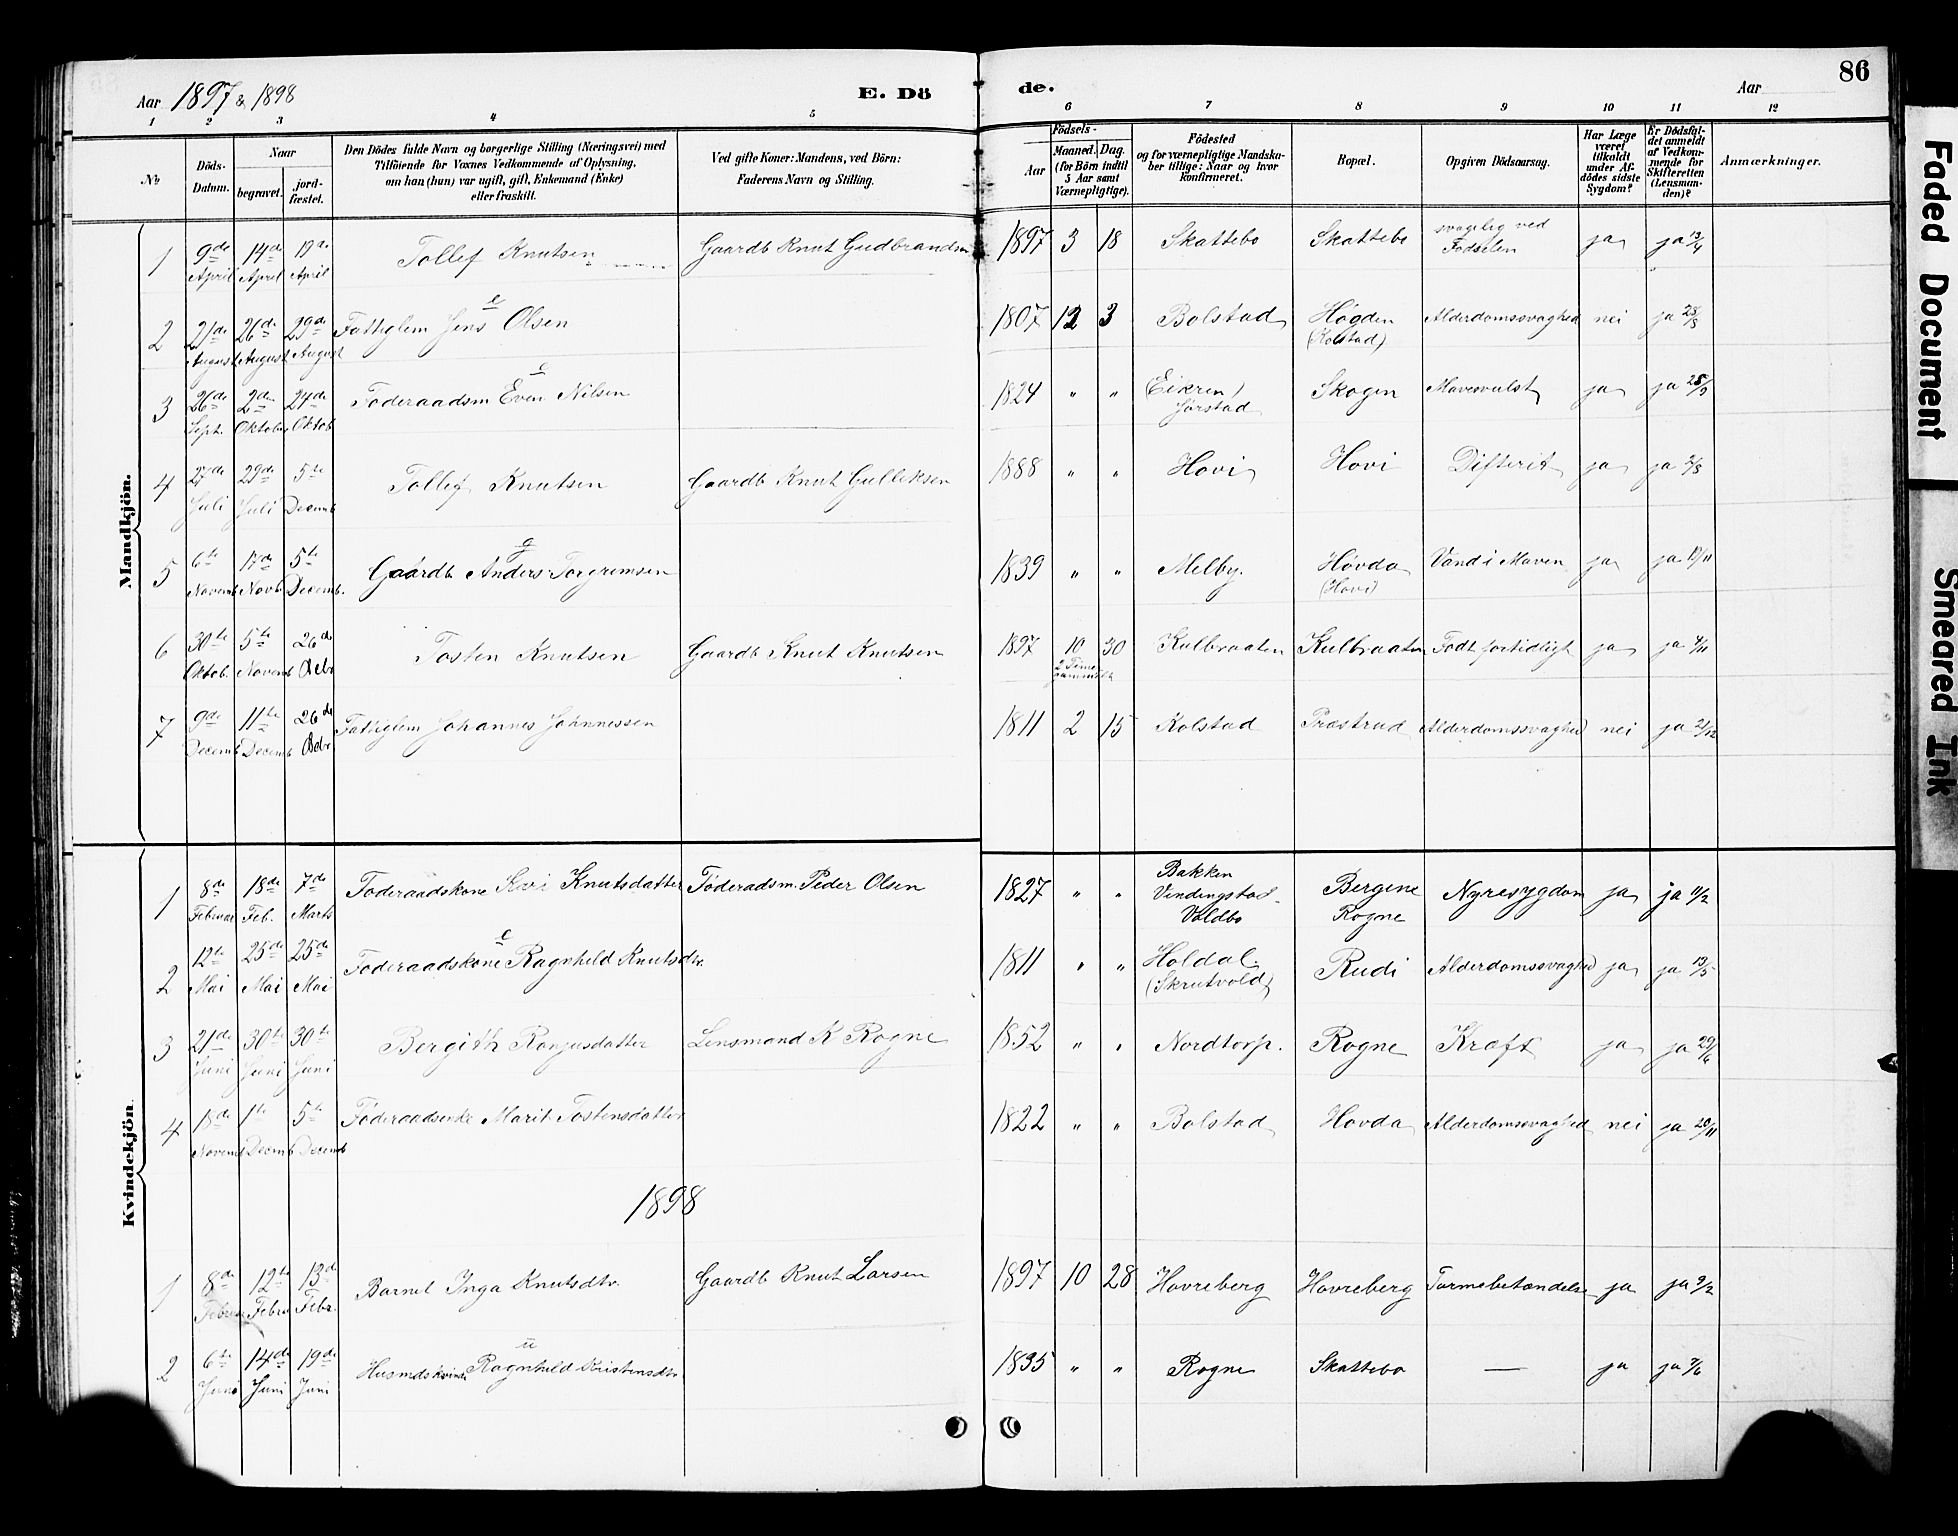 Aar 1897 & 1898 E. Dö de. Aar 86
1 2 3 4 5 6 7 8 9 10 11 12
№ Döds-Datum. Naar begravet. jordfæstet. Den Dödes fulde Navn og borgerlige Stilling (Næringsvei) med Tilföiende for Voxnes Vedkommende af Oplysning, om han (hun) var ugift, gift, Enkemand (Enke) eller fraskilt. Ved gifte Koner: Mandens, ved Börn: Faderens Navn og Stilling. Födsels- Aar Maaned. Dag. (for Börn indtil 5 Aar samt Værnepligtige). Födested og for værnepligtige Mandskaber tillige: Naar og hvor konfirmeret. Bopæl. Opgiven Dödsaarsag. Har Læge været tilkaldt under Afdødes sidste Sygdom? Er Dödsfaldet anmeldt af Vedkommende for Skifteretten (Lensmanden)? Anmærkninger.
Mandkjön.
1 9de April 14de April 19de April Tollef Knutsen Gaardb Knut Gudbrandsn 1897 3 18 Skattebo Skattebo svagelig ved Fødselen ja ja 13/4
2 21de August 26de August 29de August Fattiglem Jens Olsen e 1807 12 3 Bolstad Høgden (Kolstad) Alderdomssvaghed nei ja 23/8
3 26de Sept. 2den Oktober 24de Oktob Føderaadsm Even Nilsen e 1824 " " (Eikren) Jørstad Skogen Mavesvulst ja ja 28/9
4 27de Juli 29de Juli 5te Decemb Tollef Knutsen Gaardb Knut Gulliksen 1888 " " Hovi Hovi Difterit ja ja 2/8
5 6te Novemb 17de Novb. 5te Decemb. Gaardb. Anders Torgrimsen g 1839 " " Melby. Høvda (Hovi) Vand i Maven ja ja 12/11
6 30te Oktob. 5te Novemb 26de Debr Tosten Knutsen Gaardb Knut Knutsen 1897 10 30 2 Timer gammelt Kulbraaten Kulbraaten Født fortidligt ja ja 4/11
7 9de Decemb 11te Decemb 26de Debr Fattiglem Johannes Johnnessen 1811 2 15 Kolstad Præstrud Alderdomssvaghed nei ja 21/12
Kvindekjön
1 8de Februar 18de Feb. 7de Marts Føderaadskone Kari Knutsdatter Føderadsm. Peder Olsen 1827 " " Bakken Vindingstad Voldbo Bergene Rogne Nyresygdom ja ja 11/2
2 12te Mai 25de Mai 25de Mai Føderaadskone Ragnhild Knutsdtr. e 1811 " " Holdal. (Skrutvold) Rudi Alderdomssvaghed ja ja 19/5
3 21de Juni 30te Juni 30te Juni Bergith Ranjusdatter Lensmand K Rogne 1852 " " Nordtorp. Rogne Kræft ja ja 29/6
4 18de Novemb 1te Decmb 5te Decemb Føderaadsenke Marit Tostensdatter 1822 " " Bolstad Hovda Alderdomssvaghed nei ja 20/11
1898
1 8de Februar 12te Febru 13de Febr. Barnet Inga Knutsdtr. Gaardb Knut Larsen 1897 10 28 Hovreberg Hovreberg Tarmebetændelse ja ja 9/2
2 6te Juni 14de Juni 19de Juni Husmdskvinde Ragnhild Kristensdtr u 1835 " " Rogne Skattebo — ja ja 7/6
Faded Document
Smeared Ink